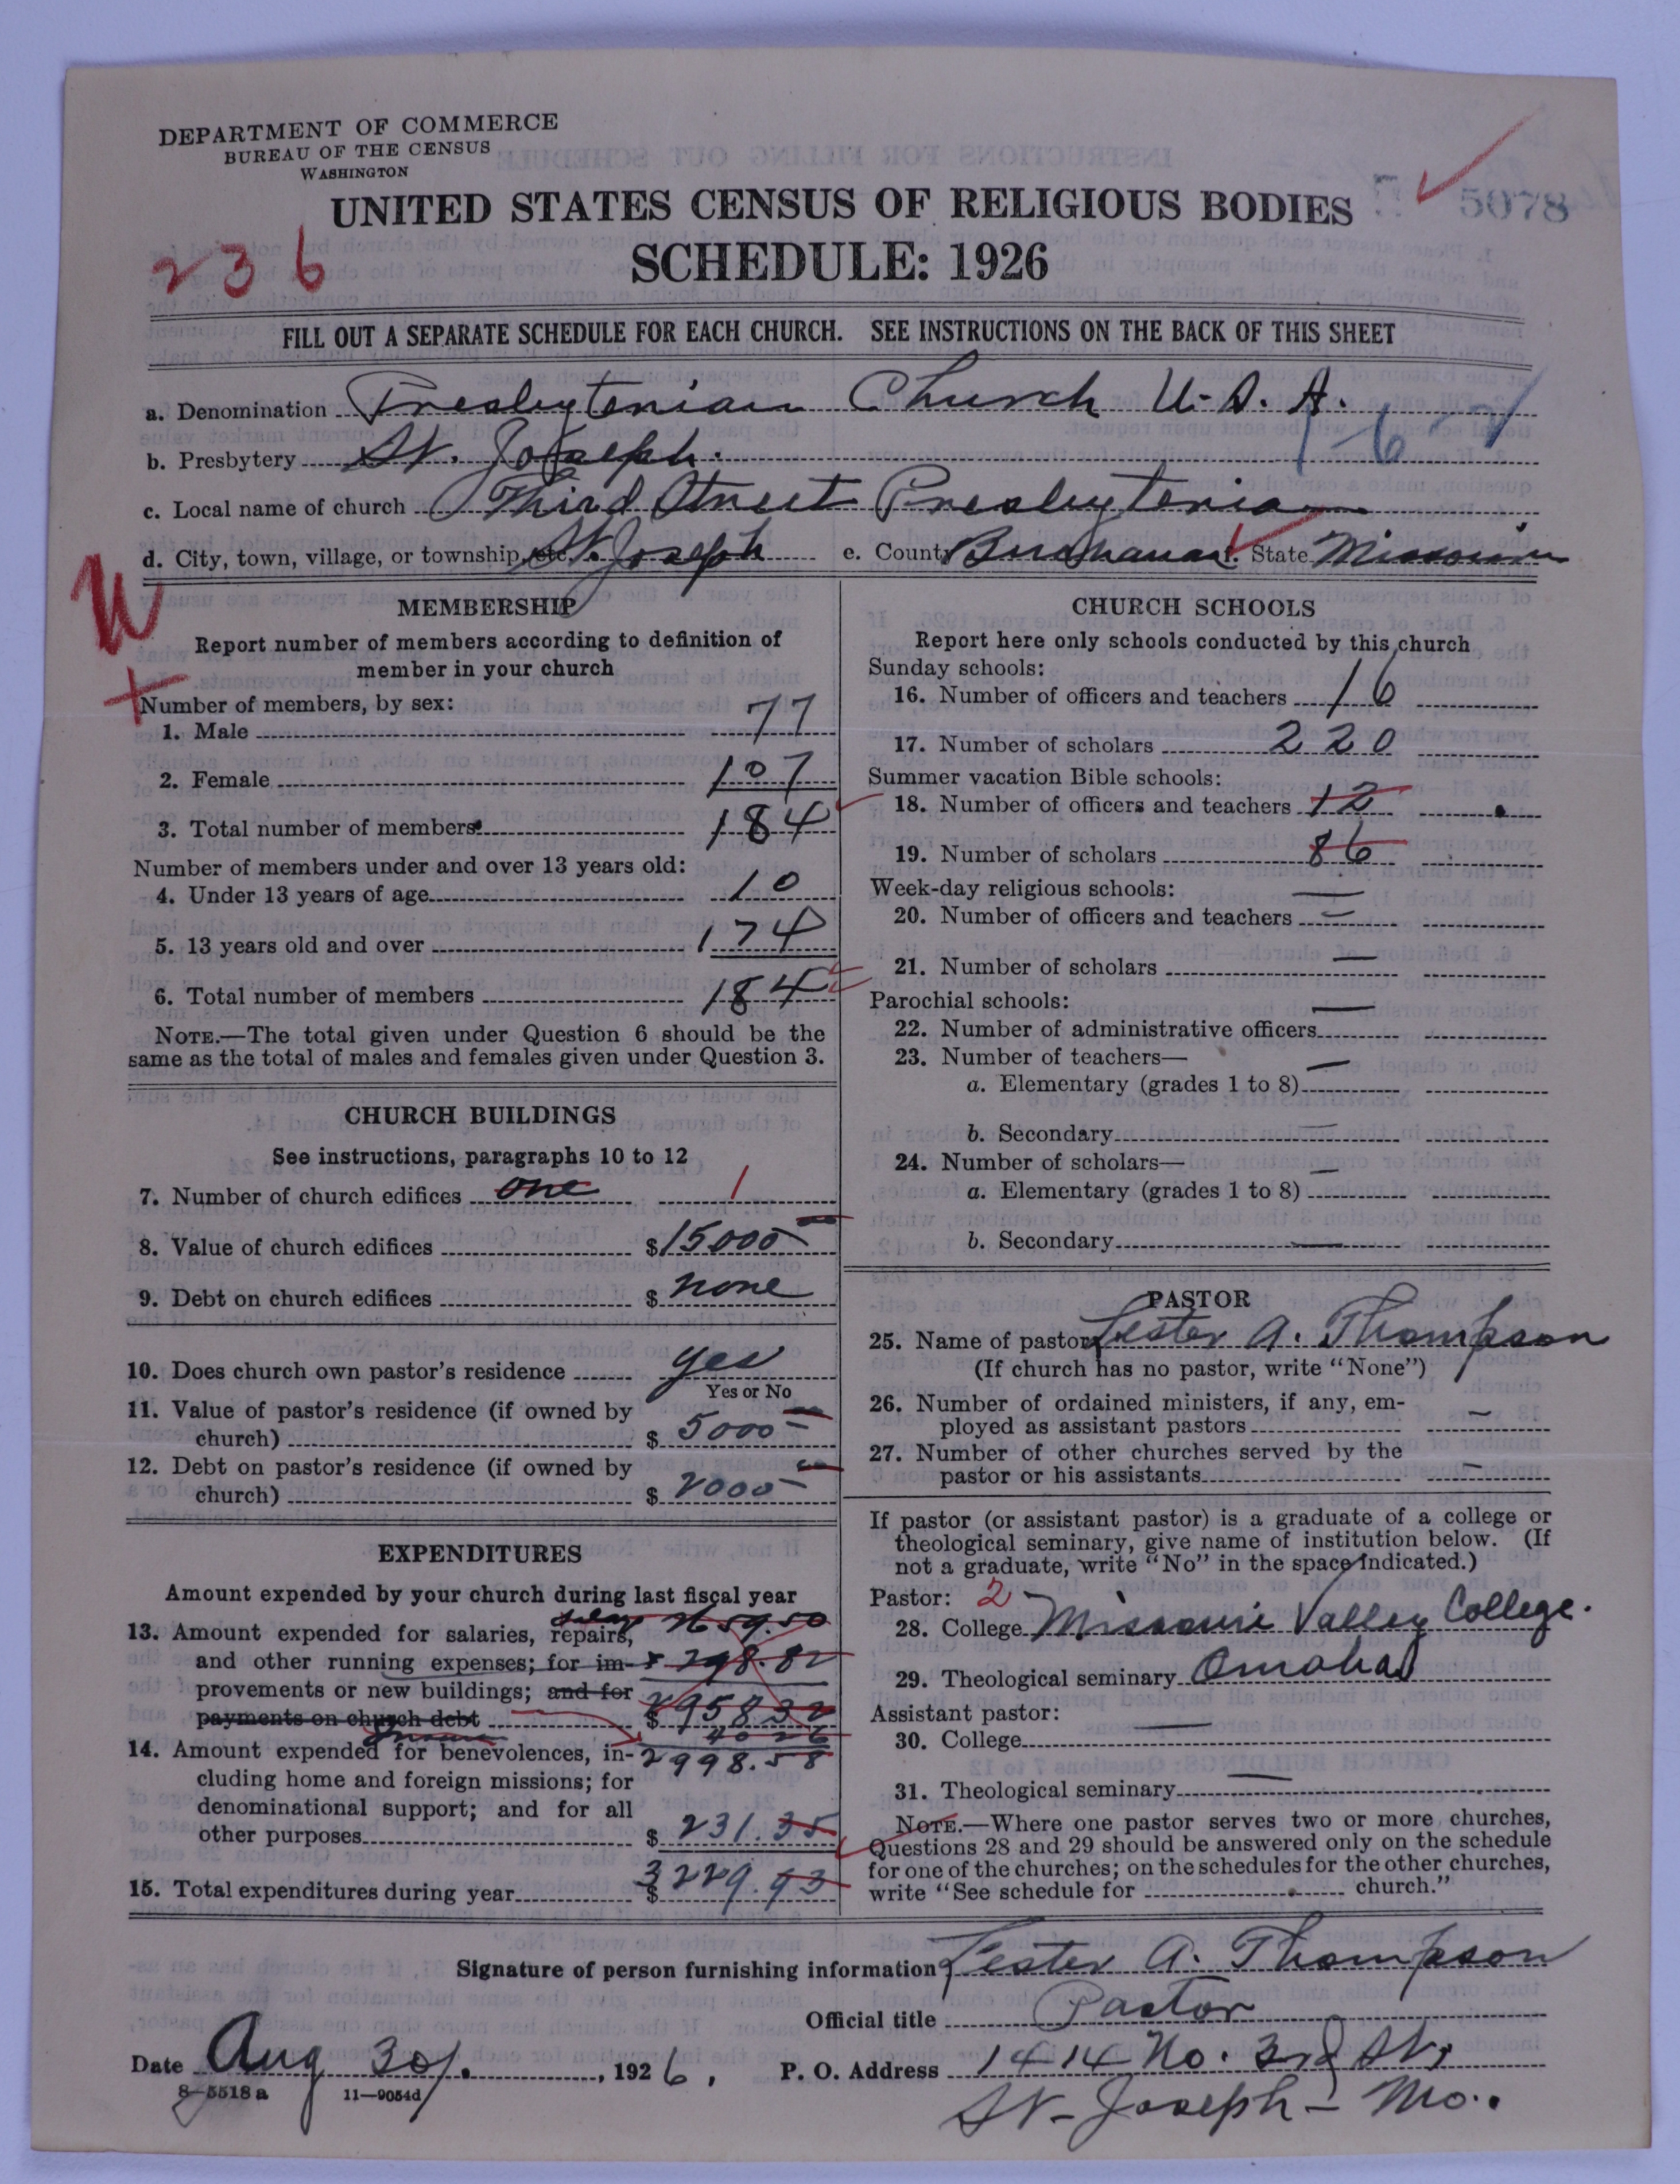 DEPARTMENT OF COMMERCE
BUREAU OF THE CENSUS
WASHINGTON
UNITED STATES CENSUS OF RELIGIOUS BODIES
5078
SCHEDULE: 1926
236
FILL OUT A SEPARATE SCHEDULE FOR EACH CHURCH. SEE INSTRUCTIONS ON THE BACK OF THIS SHEET
a. Denomination Presbyterian Church U.S.A.
b. Presbytery St. Joseph.
1-6-
c. Local name of church Third Street Presbyterian
d. City, town, village, or township, etc. St. Joseph e. County Buchanan f. State Missouri
W
+
MEMBERSHIP
Report number of members according to definition of
member in your church
Number of members, by sex:
1. Male 77
2. Female 107
3. Total number of members 184
Number of members under and over 13 years old:
4. Under 13 years of age 10
5. 13 years old and over 174
6. Total number of members 184
NOTE.—The total given under Question 6 should be the
same as the total of males and females given under Question 3.
CHURCH BUILDINGS
See instructions, paragraphs 10 to 12
7. Number of church edifices one 1
8. Value of church edifices $15000
9. Debt on church edifices $ none
10. Does church own pastor's residence yes
Yes or No
11. Value of pastor's residence (if owned by
church) $ 5000
12. Debt on pastor's residence (if owned by
church) $ 2000
EXPENDITURES
Amount expended by your church during last fiscal year
2659.50
13. Amount expended for salaries, repairs,
and other running expenses; for im- 298.82
provements or new buildings; and for
payments on church debt $ 2958.32
40.26
14. Amount expended for benevolences, in- 2998.58
cluding home and foreign missions; for
denominational support; and for all
other purposes $ 231.35
15. Total expenditures during year $ 3229.93
CHURCH SCHOOLS
Report here only schools conducted by this church
Sunday schools:
16. Number of officers and teachers 16
17. Number of scholars 220
Summer vacation Bible schools:
18. Number of officers and teachers 12
19. Number of scholars 86
Week-day religious schools:
20. Number of officers and teachers —
21. Number of scholars —
Parochial schools:
22. Number of administrative officers —
23. Number of teachers—
a. Elementary (grades 1 to 8) —
b. Secondary —
24. Number of scholars—
a. Elementary (grades 1 to 8) —
b. Secondary —
PASTOR
25. Name of pastor Lester A. Thompson
(If church has no pastor, write "None")
26. Number of ordained ministers, if any, em-
ployed as assistant pastors —
27. Number of other churches served by the
pastor or his assistants —
If pastor (or assistant pastor) is a graduate of a college or
theological seminary, give name of institution below. (If
not a graduate, write "No" in the space indicated.)
Pastor: 2
28. College Missouri Valley College.
29. Theological seminary Omaha
Assistant pastor:
30. College —
31. Theological seminary —
NOTE.—Where one pastor serves two or more churches,
Questions 28 and 29 should be answered only on the schedule
for one of the churches; on the schedules for the other churches,
write "See schedule for church."
Signature of person furnishing information Lester A. Thompson
Official title Pastor
Date Aug 30, 1926, P. O. Address 1414 No. 3rd St,
8-5518 a 11-9054d
St-Joseph-Mo.